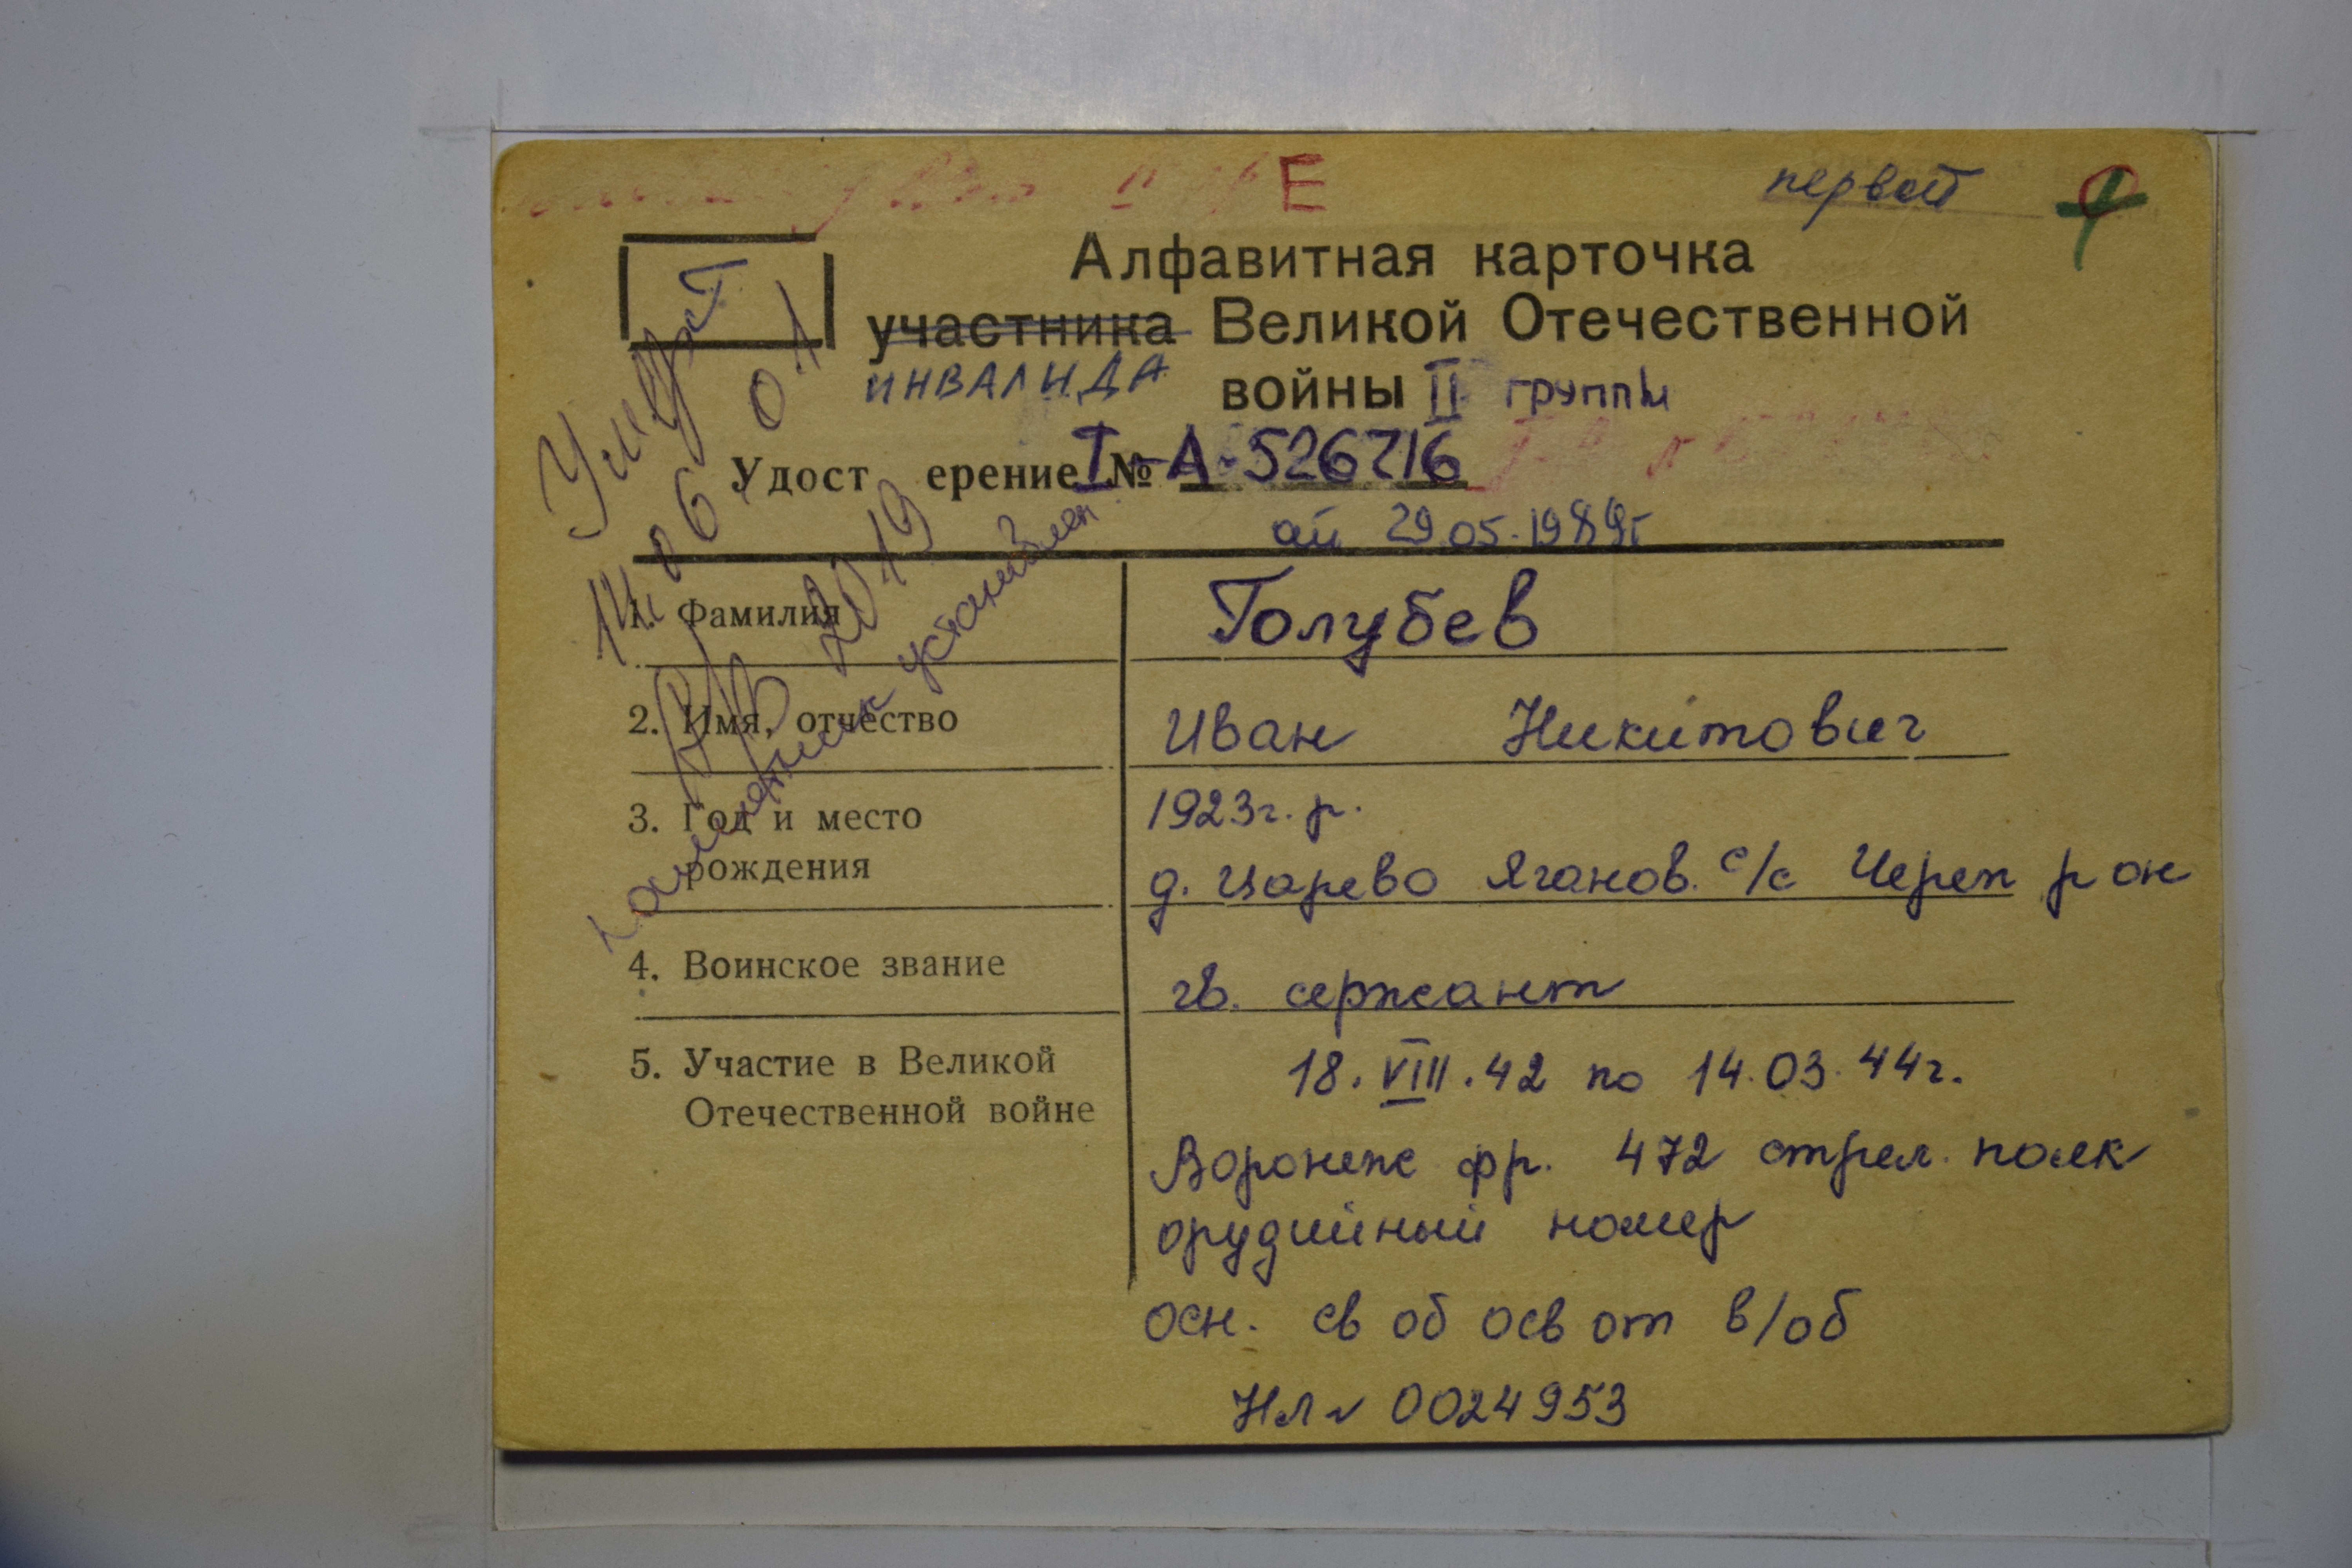 Е
первой
Алфавитная карточка
участника Великой Отечественной
ИНВАЛИДА войны II группы
Удост ерение I № -А-526716
29.05.1989г
Умер
14.06.01
2019
памятник установлен
1. Фамилия Голубев
2. Имя, отчество Иван Никитович
3. Год и место 1923г.р.
рождения д. Царево Яганов. с/с Череп р он
4. Воинское звание гв. сержант
5. Участие в Великой 18.VIII.42 по 14.03.44г.
Отечественной войне
Воронеж фр. 472 стрел. полк
орудийный номер
осн. св об осв от в/об
НЛ № 0024953